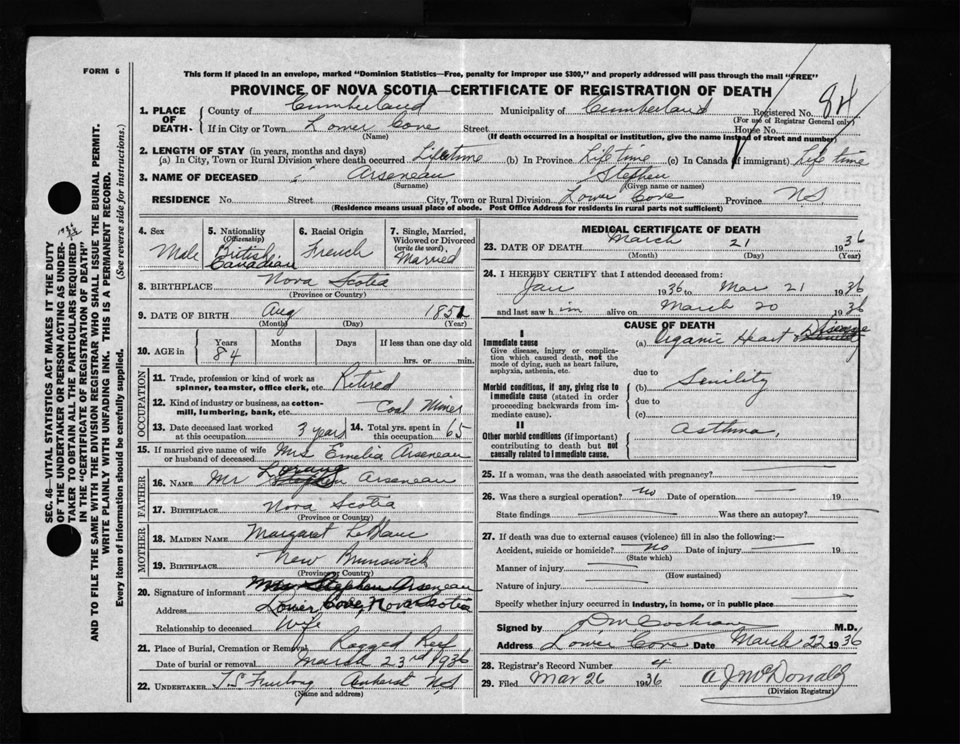 FORM 6
This form if placed in an envelope, marked "Dominion Statistics—Free, penalty for improper use $300," and properly addressed will pass through the mail "FREE"
PROVINCE OF NOVA SCOTIA—CERTIFICATE OF REGISTRATION OF DEATH
1. PLACE OF DEATH. County of Cumberland Municipality of Cumberland Registered No. 84
(For use of Registrar General only)
If in City or Town Lower Cove Street House No.
(Name) (If death occurred in a hospital or institution, give the name instead of street and number)
2. LENGTH OF STAY (in years, months and days)
(a) In City, Town or Rural Division where death occurred Lifetime (b) In Province Life time (c) In Canada (if immigrant) Life time
3. NAME OF DECEASED Arseneau Stephen
(Surname) (Given name or names)
RESIDENCE No. Street City, Town or Rural Division Lower Cove Province NS
(Residence means usual place of abode. Post Office Address for residents in rural parts not sufficient)
SEC. 46—VITAL STATISTICS ACT MAKES IT THE DUTY
OF THE UNDERTAKER OR PERSON ACTING AS UNDER-
TAKER TO OBTAIN ALL THE PARTICULARS REQUIRED
IN THE "CERTIFICATE OF REGISTRATION OF DEATH"
AND TO FILE THE SAME WITH THE DIVISION REGISTRAR WHO SHALL ISSUE THE BURIAL PERMIT.
WRITE PLAINLY WITH UNFADING INK. THIS IS A PERMANENT RECORD.
Every item of information should be carefully supplied. (See reverse side for instructions.)
4. Sex Male
5. Nationality (Citizenship) British Canadian
6. Racial Origin French
7. Single, Married, Widowed or Divorced (write the word) Married
8. BIRTHPLACE Nova Scotia
(Province or Country)
9. DATE OF BIRTH Aug 1851
(Month) (Day) (Year)
10. AGE in Years 84 Months Days If less than one day old
hrs. or min.
OCCUPATION
11. Trade, profession or kind of work as spinner, teamster, office clerk, etc. Retired
12. Kind of industry or business, as cotton-mill, lumbering, bank, etc. Coal Miner
13. Date deceased last worked at this occupation 3 years 14. Total yrs. spent in this occupation 65
15. If married give name of wife or husband of deceased Mrs Emelia Arseneau
FATHER
16. NAME Mr Arseneau
17. BIRTHPLACE Nova Scotia
(Province or Country)
MOTHER
18. MAIDEN NAME Margaret LeBlanc
19. BIRTHPLACE New Brunswick
(Province or Country)
20. Signature of informant Mrs Stephen Arseneau
Address Lower Cove, Nova Scotia
Relationship to deceased Wife
21. Place of Burial, Cremation or Removal Ragged Reef
Date of burial or removal March 23rd 1936
22. UNDERTAKER T.S. Furlong Amherst N.S
(Name and address)
MEDICAL CERTIFICATE OF DEATH
23. DATE OF DEATH March 21 1936
(Month) (Day) (Year)
24. I HEREBY CERTIFY that I attended deceased from:
Jan 1936 to Mar 21 1936
and last saw him alive on March 20 1936
CAUSE OF DEATH
I
Immediate cause (a) Organic Heart Disease
Give disease, injury or complication which caused death, not the mode of dying, such as heart failure, asphyxia, asthenia, etc.
due to
Morbid conditions, if any, giving rise to immediate cause (stated in order proceeding backwards from immediate cause). (b) Senility
due to
(c)
II
Other morbid conditions (if important) contributing to death but not causally related to immediate cause. Asthma,
25. If a woman, was the death associated with pregnancy?
26. Was there a surgical operation? no Date of operation 19
State findings Was there an autopsy?
27. If death was due to external causes (violence) fill in also the following:
Accident, suicide or homicide? No Date of injury 19
(State which)
Manner of injury
(How sustained)
Nature of injury
Specify whether injury occurred in industry, in home, or in public place
Signed by Cochran M.D.
Address Lower Cove Date March 22 1936
28. Registrar's Record Number 4
29. Filed Mar 26 1936 A J McDonald
(Division Registrar)